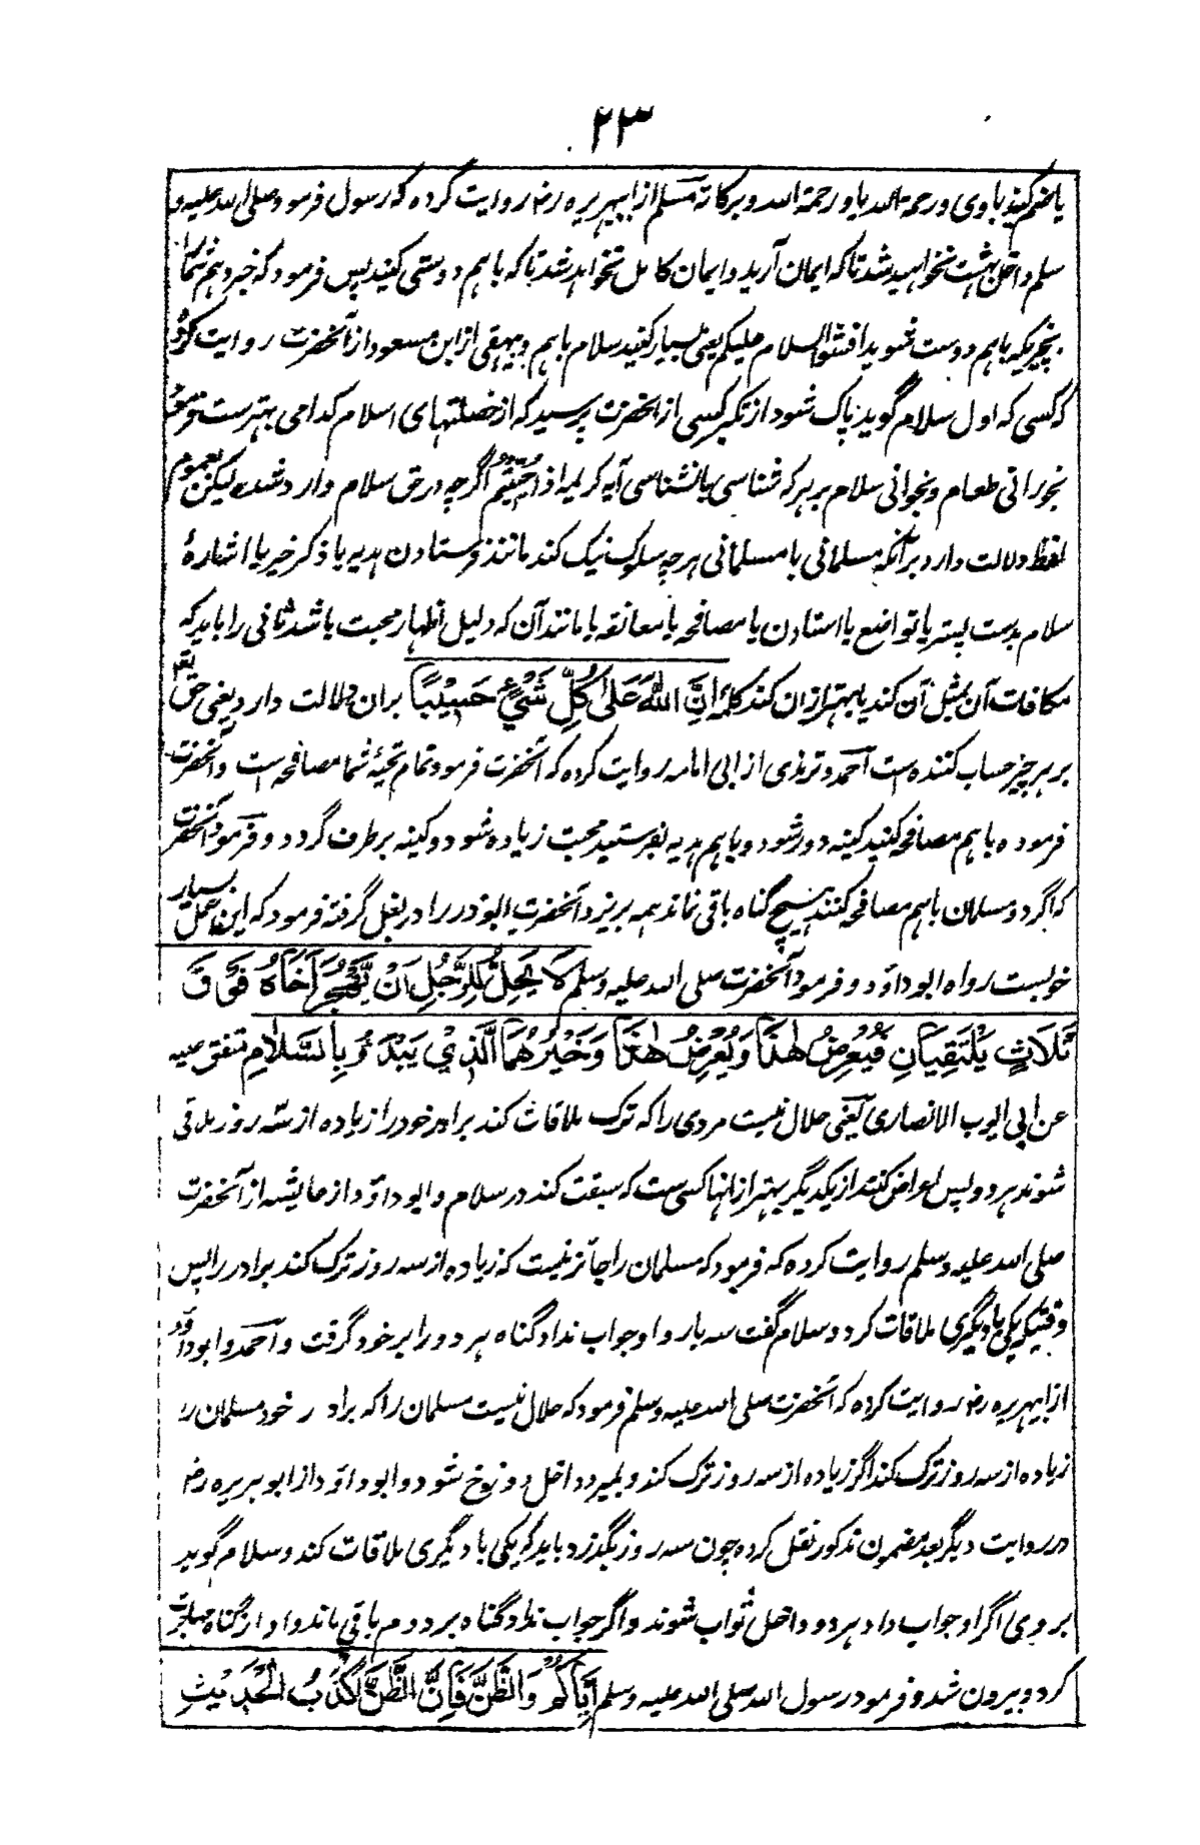 ۲۳
یا ضم کند باوی ورحمة الله یا ورحمة الله وبرکاته مسلم از ابیهریره رضـ روایت کرده که رسول فرمود صلی الله علیه و
سلم داخل بهشت نخواهید شد تا که ایمان آرید و ایمان کامل نخواهد شد تا که باهم دوستی کنید پس فرمود که خبر دهم شما را
بچیزیکه باهم دوست شوید افشوا السلام علیکم یعنی بسیار کنید سلام باهم و بیهقی از ابن مسعود از آنحضرت روایت کرد
که کسی که اول سلام گوید پاک شود از تکبر کسی از آنحضرت پرسید که از خصلتهای اسلام کدامی بهتر ست فرمود
بخورانی طعام و بخوانی سلام بر هر که شناسی یا نشناسی آیه کریمه اذا حییتم اگرچه در حق سلام وارد شده لیکن بعموم
لفظ دلالت دارد بر آنکه مسلمانی با مسلمانی هرچه سلوک نیک کند مانند فرستادن هدیه یا ذکر خیر یا اشارۀ
سلام بدست بسر یا تواضع یا استادن یا مصافحه یا معانقه یا مانند آن که دلیل اظهار محبت باشد ثانی را باید که
مکافات آن بمثل آن کند یا بهتر ازان کند کلمۀ اِنَّ اللّٰهَ عَلٰی کُلِّ شَیْءٍ حَسِیْبًا بران دلالت دارد یعنی حق تعالی
بر هر چیز حساب کننده است احمد و ترمذی از ابی امامه روایت کرده که آنحضرت فرمود تمام تحیۀ شما مصافحه است و آنحضرت
فرموده باهم مصافحه کنید کینه دور شود و باهم هدیه بفرستید محبت زیاده شود و کینه برطرف گردد و فرمود آنحضرت
که اگر دو مسلمان باهم مصافحه کنند هیچ گناه باقی نماند همه بریزد و آنحضرت ابوذر را در بغل گرفته فرمود که این عمل بسیار
خوبست رواه ابوداؤد و فرمود آنحضرت صلی الله علیه وسلم لَا یَحِلُّ لِلرَّجُلِ اَنْ یَّهْجُرَ اَخَاهُ فَوْقَ
ثَلَاثٍ یَلْتَقِیَانِ فَیُعْرِضُ هٰذَا وَیُعْرِضُ هٰذَا وَخَیْرُهُمَا الَّذِیْ یَبْدَءُ بِالسَّلَامِ متفق علیه
عن ابی ایوب الانصاری یعنی حلال نیست مردی را که ترک ملاقات کند برادر خود را زیاده از سه روز ملاقی
شوند هر دو پس اعراض کنند از یکدیگر بهتر از انها کسی ست که سبقت کند در سلام و ابوداؤد از عایشه از آنحضرت
صلی الله علیه وسلم روایت کرده که فرمود که مسلمان را جائز نیست که زیاده از سه روز ترک کند برادر را پس
وقتیکه یکی با دیگری ملاقات کرد و سلام گفت سه بار و او جواب نداد گناه هر دو را بر خود گرفت و احمد و ابوداؤد
از ابیهریره رضـ روایت کرده که آنحضرت صلی الله علیه وسلم فرمود که حلال نیست مسلمان را که برادر خود مسلمان را
زیاده از سه روز ترک کند اگر زیاده از سه روز ترک کند و بمیرد داخل دوزخ شود و ابوداؤد از ابوهریره رضـ
در روایت دیگر بعد مضمون مذکور نقل کرده چون سه روز بگذرد باید که یکی با دیگری ملاقات کند و سلام گوید
بروی اگر او جواب داد هر دو داخل ثواب شوند و اگر جواب نداد گناه بر دوم باقی ماند و او از گناه مهاجرت
کرد و بیرون شد و فرمود رسول الله صلی الله علیه وسلم اِیَّاکُمْ وَالظَّنَّ فَاِنَّ الظَّنَّ اَکْذَبُ الْحَدِیْثِ